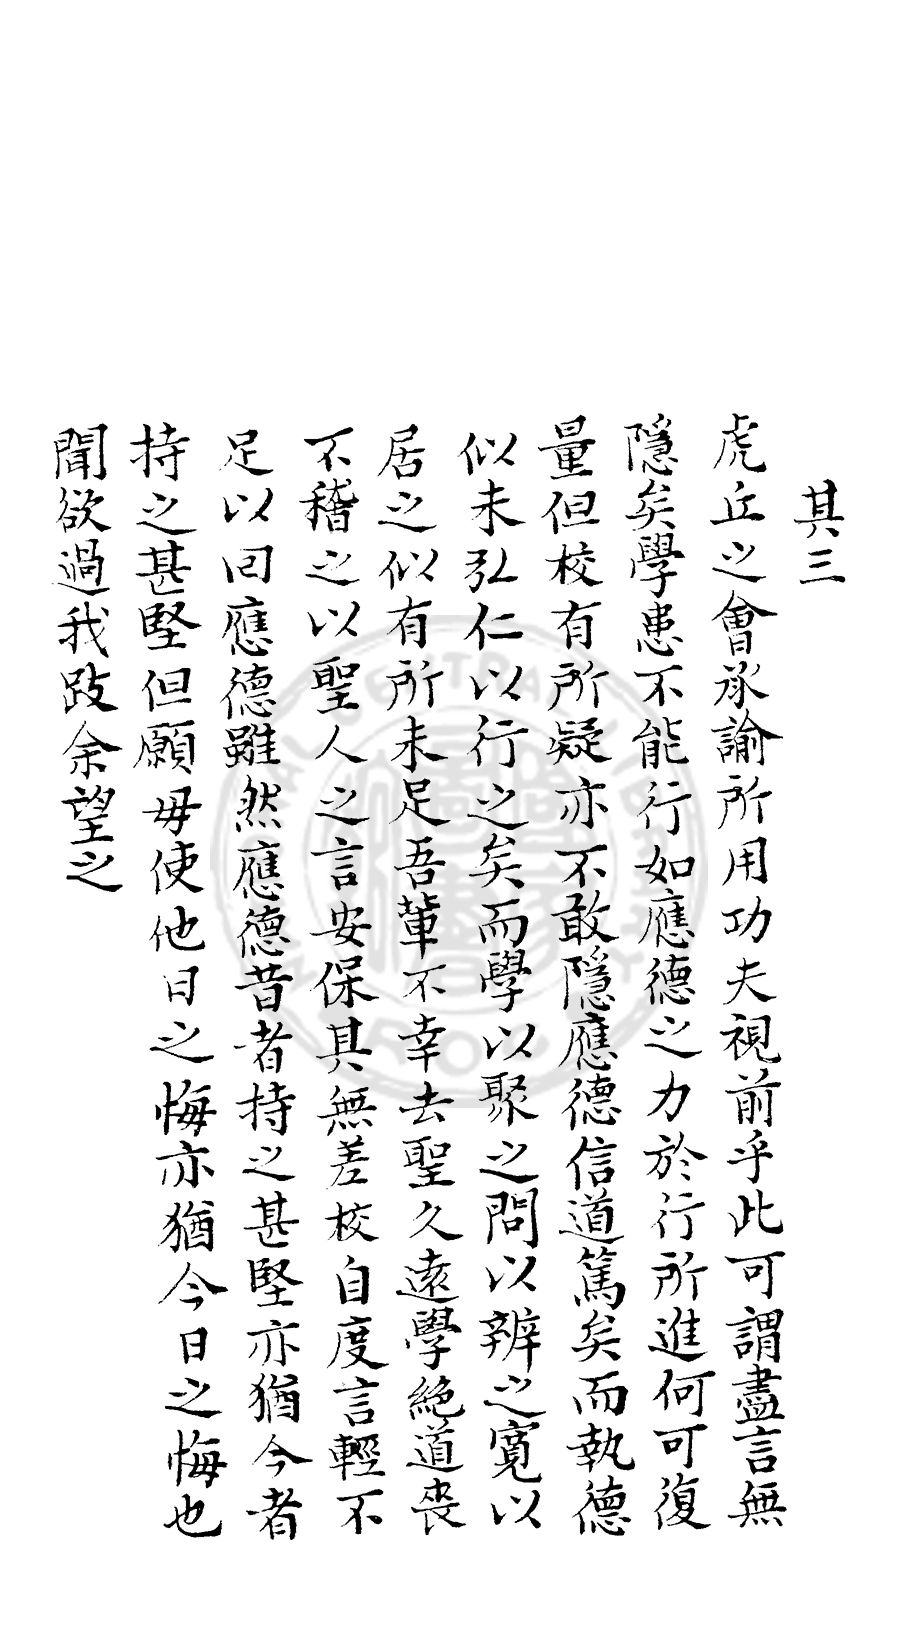 其三
虎丘之會承諭所用功夫視前乎此可謂盡言無
隱矣學患不能行如應德之力於行所進何可復
量但校有所疑亦不敢隱應德信道篤矣而執德
似未弘仁以行之矣而學以聚之問以辨之寬以
居之似有所未足吾輩不幸去聖久遠學絕道喪
不稽之以聖人之言安保其無差校自度言輕不
足以回應德雖然應德昔者持之甚堅亦猶今者
持之甚堅但願毋使他日之悔亦猶今日之悔也
聞欲過我跂余望之